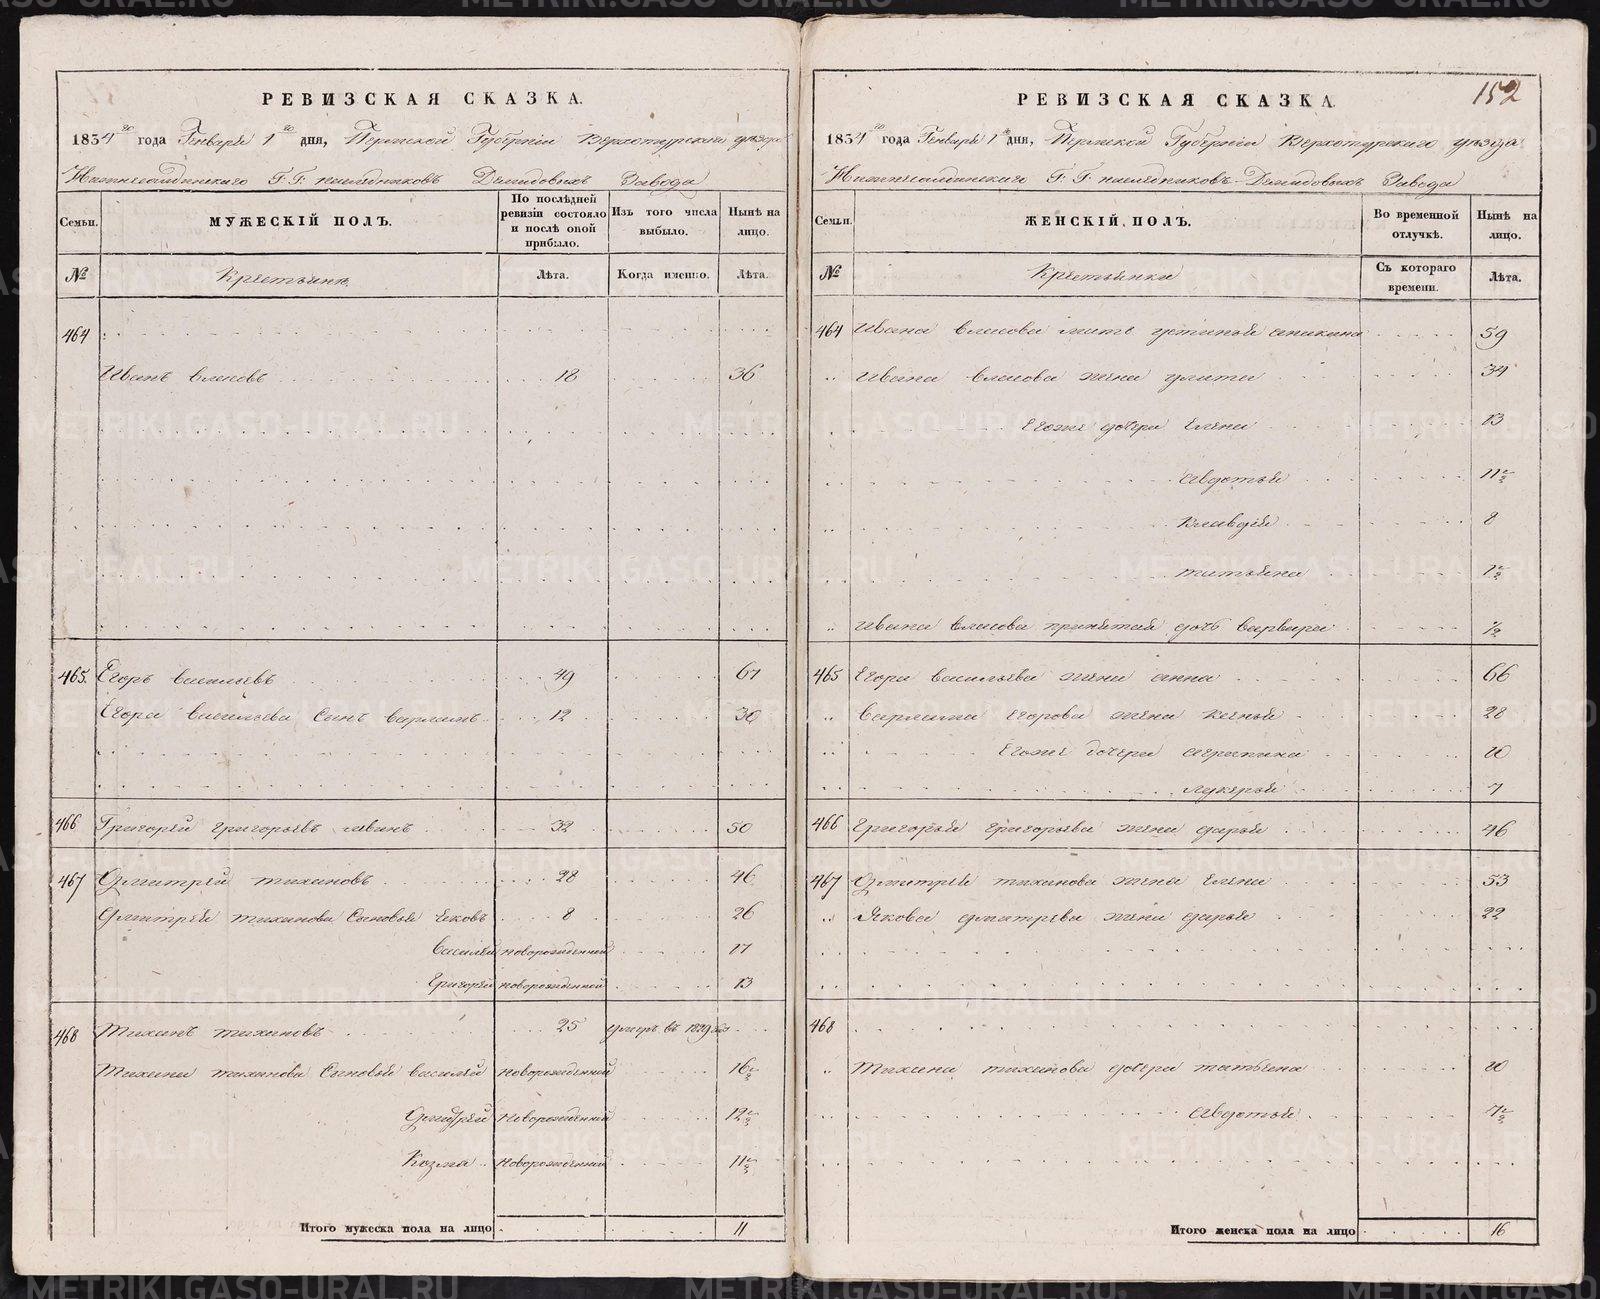 РЕВИЗСКАЯ СКАЗКА.
1834го года Генваря 1го дня, Пермской Губерніи Верхотурскаго уѣзда
Нижнесалдинскаго Г.Г. наслѣдниковъ Демидовыхъ Завода
Семьи. МУЖЕСКІЙ ПОЛЪ. По послѣдней ревизіи состояло и послѣ оной прибыло. Изъ того числа выбыло. Нынѣ на лицо.
№ Крестьяне Лѣта. Когда именно. Лѣта.
464
Иванъ Власовъ 18 36
465. Егоръ Васильевъ 49 67
Егора Васильева Сынъ Варламъ 12 30
466 Григорей Григорьевъ 32 50
467 Дмитрей Тихановъ 28 46
Дмитрея Тиханова Сыновья Яковъ 8 26
Василей новорожденной 17
Григорей новорожденной 13
468 Тиханъ Тихановъ 25 умеръ въ 1829
Тихана Тиханова Сыновья Василей новорожденной 16½
Дмитрей новорожденной 12½
Козма новорожденной 11½
Итого мужеска пола на лицо 11
152
РЕВИЗСКАЯ СКАЗКА.
1834го года Генваря 1го дня, Пермской Губерніи Верхотурскаго уѣзда
Нижнесалдинскаго Г.Г. наслѣдниковъ Демидовыхъ Завода
Семьи. ЖЕНСКІЙ ПОЛЪ. Во временной отлучкѣ. Нынѣ на лицо.
№ Крестьянки Съ котораго времени. Лѣта.
464 Ивана Власова мать Устинья Аникина 59
Ивана Власова жена Улита 34
Егоже дочери Елена 13
Авдотья 11½
Клавдія 8
Татьяна 1½
Ивана Власова принятая дочь Варвара ½
465 Егора Васильева жена Анна 66
Варлама Егорова жена Ксенья 28
Егоже дочери Аграпина 10
Лукерья 7
466 Григорья Григорьева жена Дарья 46
467 Дмитрея Тиханова жена Елена 53
Якова Дмитрева жена Дарья 22
468
Тихана Тиханова дочери Татьяна 10
Авдотья 7½
Итого женска пола на лицо 16
METRIKI.GASO-URAL.RU